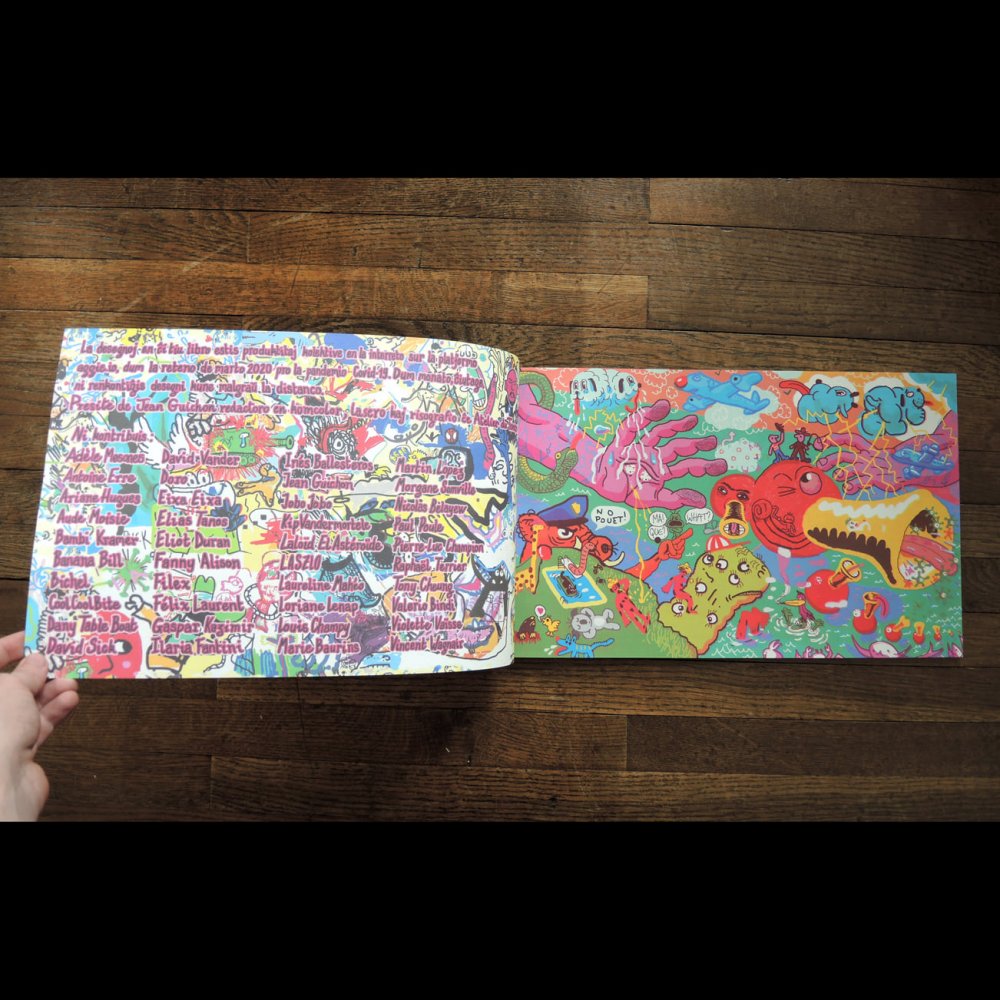 La desegnoj en ĉi tiu libro estis produktitaj kolektive en la interreto sur la platformo
aggie.io, dum la reteno de marto 2020 pro la pandemio Covid-19. Dum monatoj,
ni renkontiĝis desegni kune, malgraŭ la distanco.
de Jean Guichon, redactoro en homcolor, lasero kaj risografio
Ni kontribuis:
Adèle Mesones
Antoine Erre
Ariane Hugues
Aude Moisie
Bambi Kramer
Banana Bill
Bichel
CoolCoolBite
Dany Table Boat
David Sick
David Vander
Dozo
Eixa Eixa
Elias Tanos
Eliot Duran
Fanny Alison
Filex
Félix Laurent
Gaspar Kasimir
Ilaria Fantini
Inès Ballesteros
Jean Guichon
Jobo Jobo
KipVandermortels
Laloui Et Astéroïde
LASZLO
Laureline Matéo
Loriane Lenap
Louis Champy
Marie Daurins
Martin Lopez
Morgane Somville
Nicolas Belayew
Paul Poule
Pierre-Luc Champion
Raphaël Terrier
Tony Cheung
Valerio Bindi
Violette Vaisse
Vincent Wagnair
NO
POUET!
MA!
QUE?
WHAT?